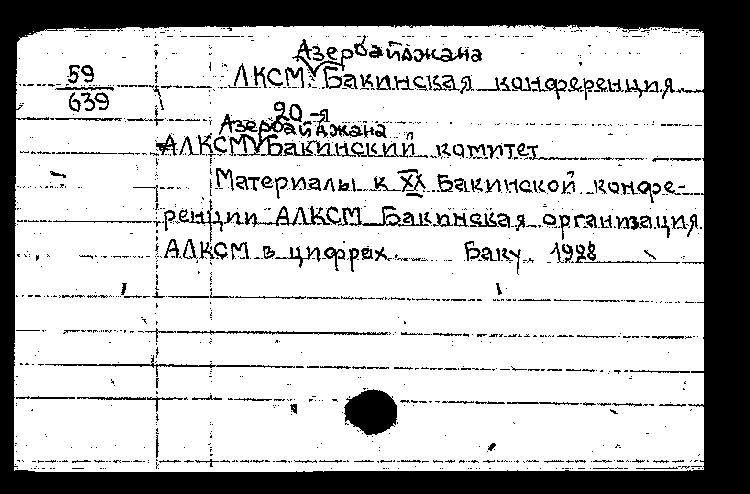 Азербайджана
59
639
ЛКСМ Бакинская конференция
20-я
Азербайджана
АЛКСМ Бакинский комитет
Материалы к XX Бакинской конфе-
ренции АЛКСМ Бакинская организация
АЛКСМ в цифрах. Баку 1928